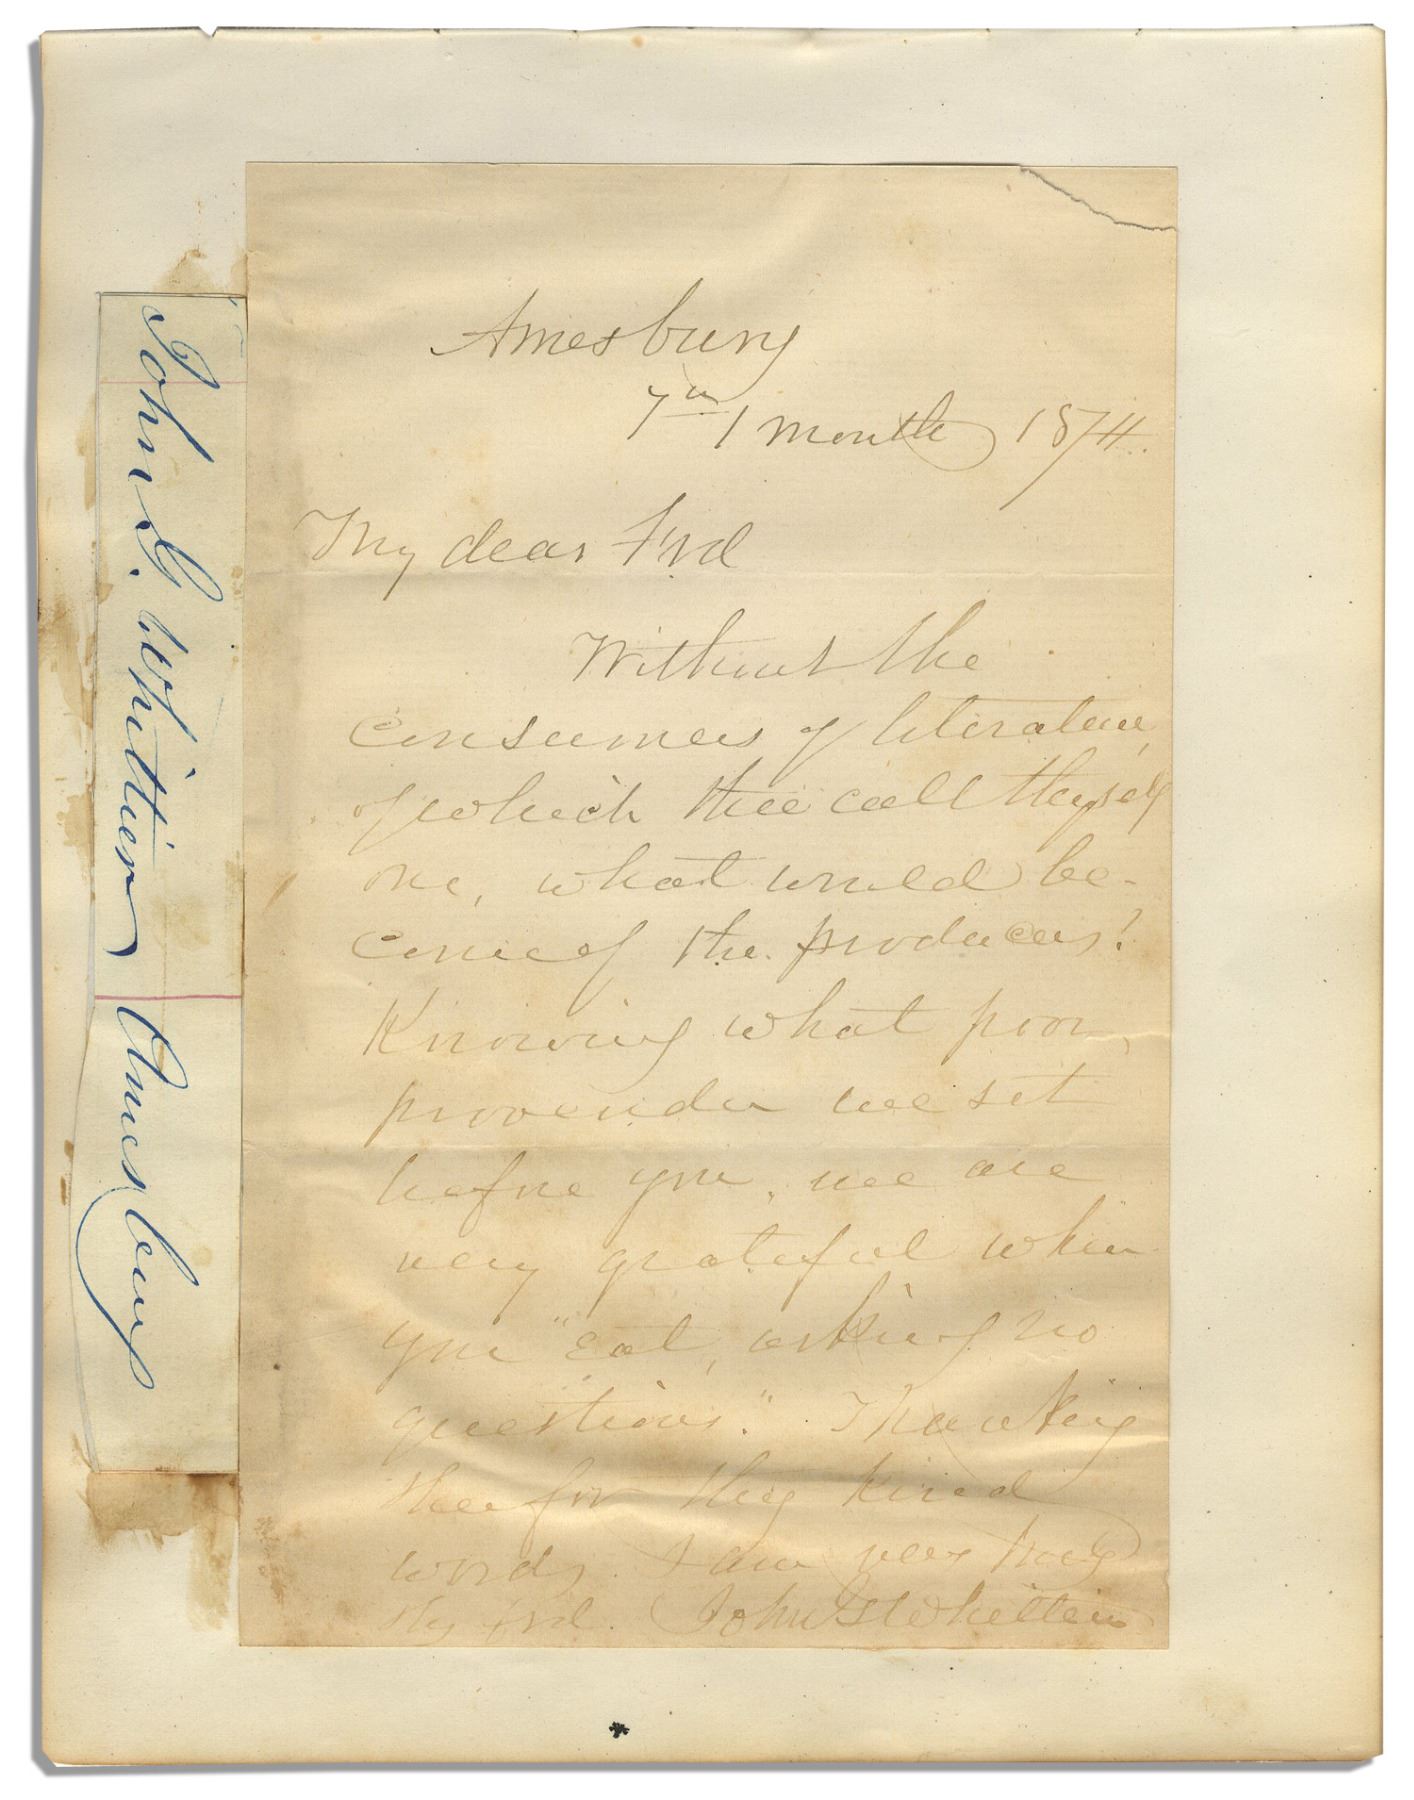 Amesbury
7th 1 month 1874.
My dear Frd
Without the
consumers of literature,
of which thee call thyself
one, what would be-
come of the producers!
Knowing what poor
provender we set
before you, we are
very grateful when
you "eat, asking no
questions." Thanking
thee for thy kind
words I am very truly
thy frd. John G Whittier
John G. Whittier Amesbury